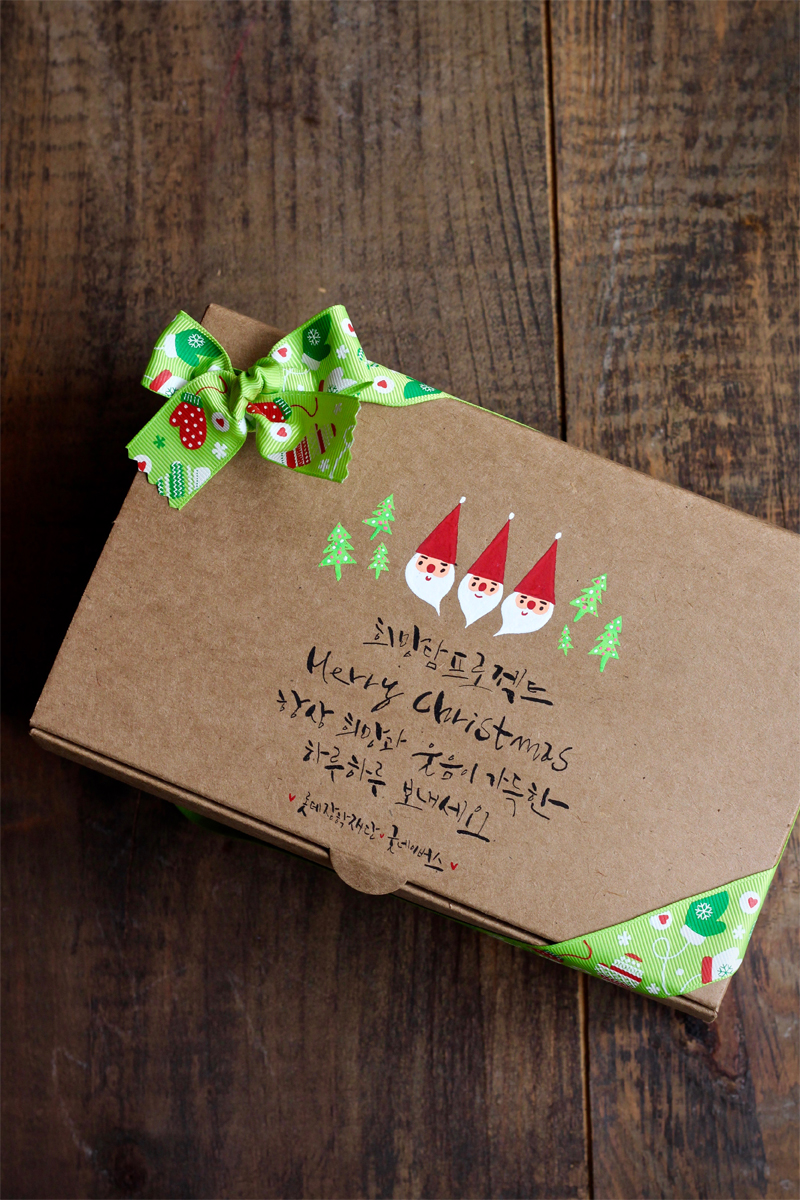 희망탐프로젝트
Merry Christmas
항상 희망과 웃음이 가득한
하루하루 보내세요
롯데장학재단 굿네이버스